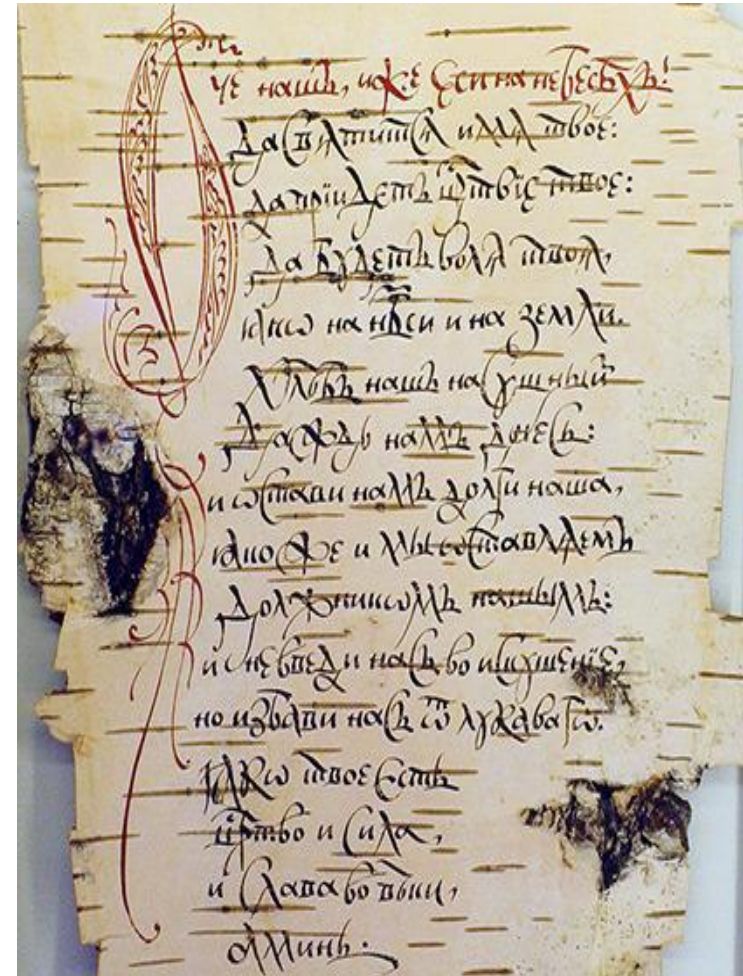 Отче нашъ, иже еси на небесѣхъ!
Да святится имя твое:
да пріидетъ цр҃твіе твое:
да будетъ воля твоя,
яко на нб҃си и на земли.
Хлѣбъ нашъ насущный
даждь намъ днесь:
и ѡстави намъ долги наша,
якоже и мы ѡставляемъ
должникѡмъ нашымъ:
и не введи насъ во искушеніе,
но избави насъ ѿ лукавагѡ.
Якѡ твое есть
цр҃тво и сила,
и слава во вѣки,
аминь.